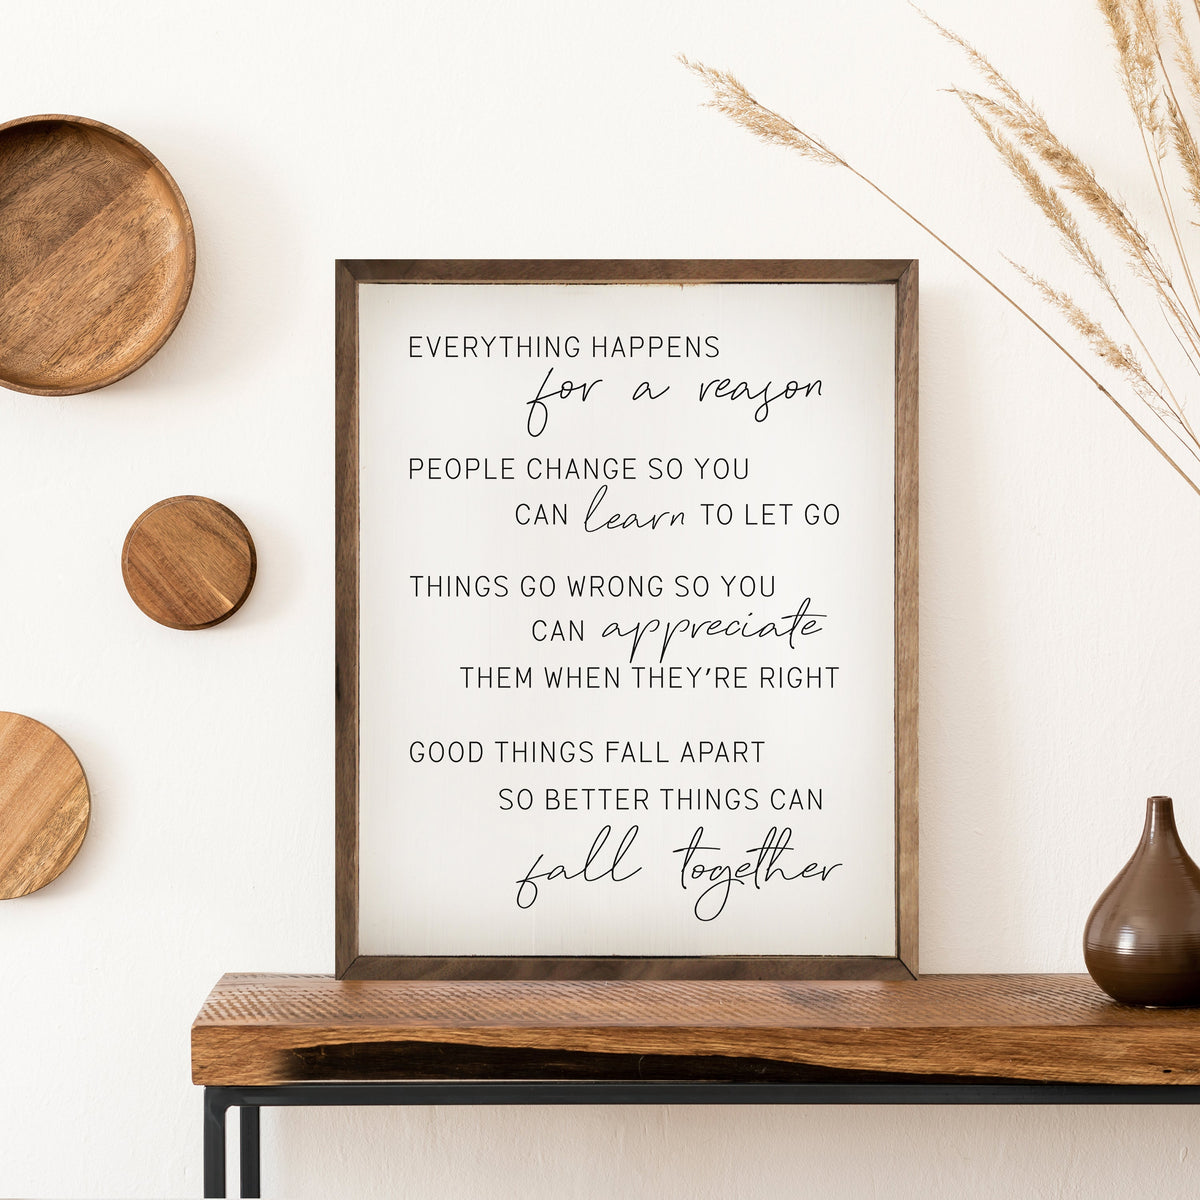 EVERYTHING HAPPENS
for a reason
PEOPLE CHANGE SO YOU
CAN learn TO LET GO
THINGS GO WRONG SO YOU
CAN appreciate
THEM WHEN THEY'RE RIGHT
GOOD THINGS FALL APART
SO BETTER THINGS CAN
fall together